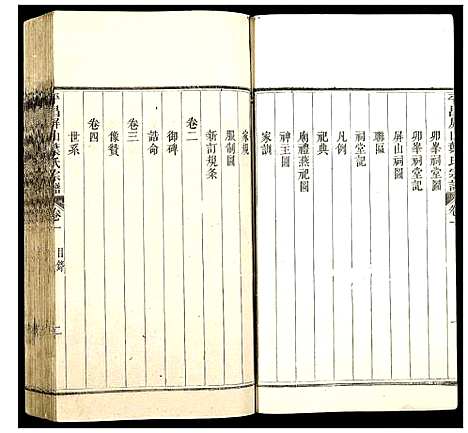 卯峯祠堂圖
卯峯祠堂記
屏山祠圖
聯匾
祠堂記
凡例
祀典
廟禮燕祀圖
神主圖
家訓
家規
服制圖
新訂規条
卷二
御碑
誥命
卷三
像贊
卷四
世系
平昌屏山葉氏宗譜
卷一
目錄
二